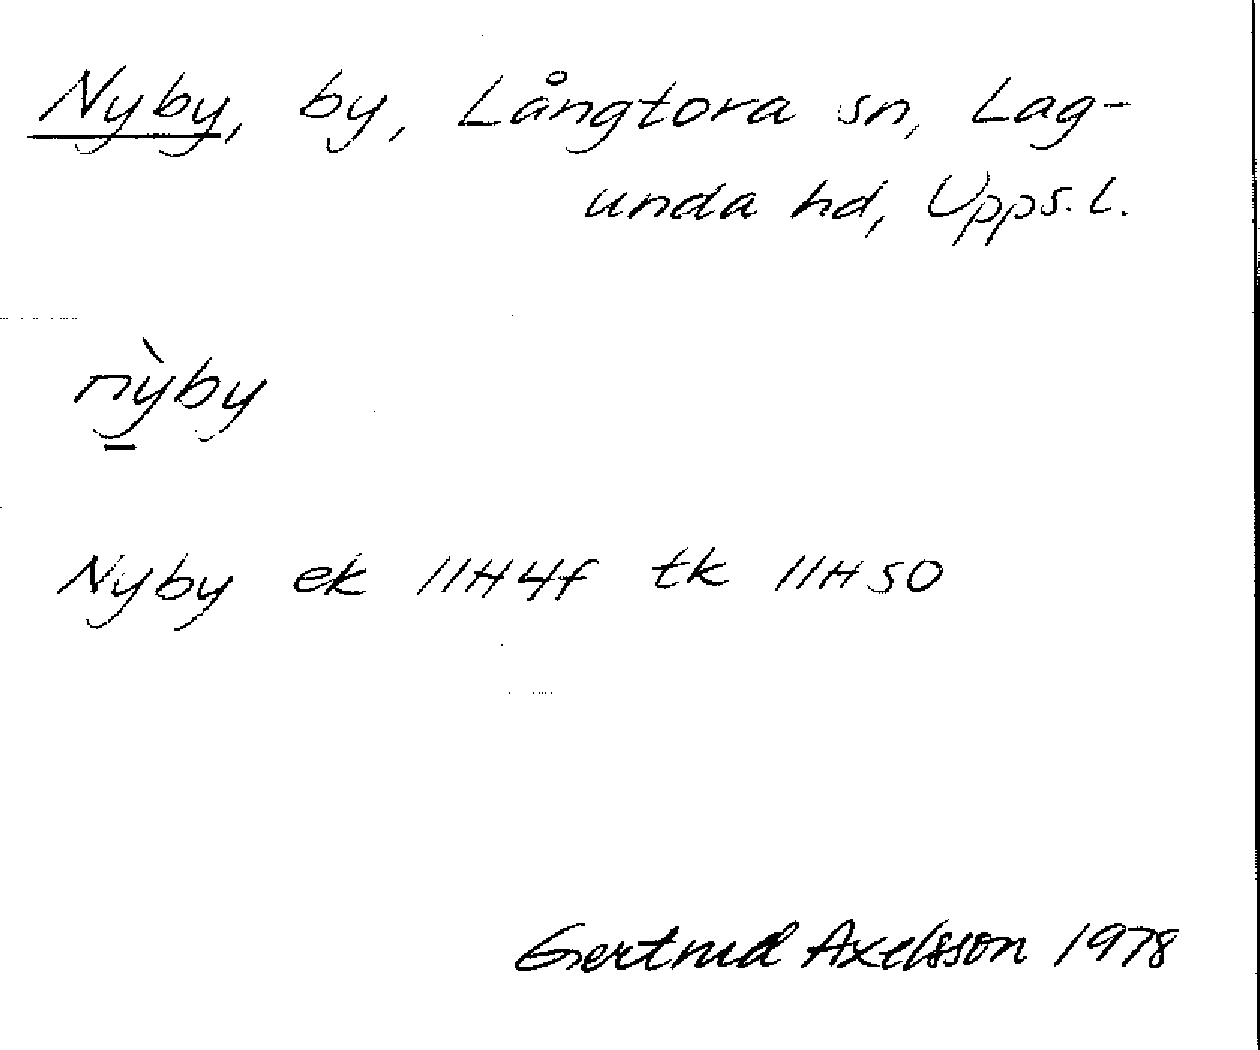 Nyby, by, Långtora sn, Lag-
unda hd, Upps. l.
nỳby
Nyby ek 11H4f tk 11HSO
Gertrud Axelsson 1978